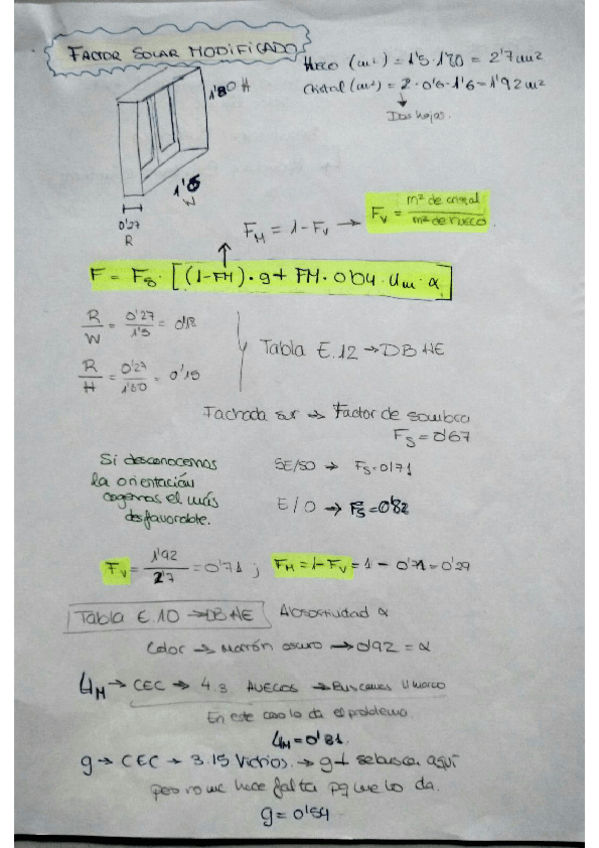 FACTOR SOLAR MODIFICADO
Hueco (m²) = 1'5 · 1'80 = 2'7 m²
Cristal (m²) = 2 · 0'6 · 1'6 = 1'92 m²
Dos hojas.
1'80 H
1'5
W
0'27
R
F_M = 1 - F_V → F_V = m² de cristal / m² de hueco
F = F_S · [(1-FM) · g + FM · 0'04 · U_m · α
R/W = 0'27/1'5 = 0'18
R/H = 0'27/1'80 = 0'15
Tabla E.12 → DB HE
Fachada sur → Factor de sombra
F_S = 0'67
Si desconocemos
la orientación
cogemos el más
desfavorable.
SE/SO → F_S = 0'71
E/O → F_S = 0'82
F_V = 1'92/2'7 = 0'71 ; F_M = 1 - F_V = 1 - 0'71 = 0'29
Tabla E.10 → DB HE Absortividad α
Color → Marrón oscuro → 0'92 = α
U_M → CEC → 4.3 HUECOS → Buscamos U marco
En este caso lo da el problema.
U_M = 0'81.
g → CEC → 3.15 Vidrios. → g⊥ se busca aquí
pero no me hace falta pq me lo da.
g = 0'54